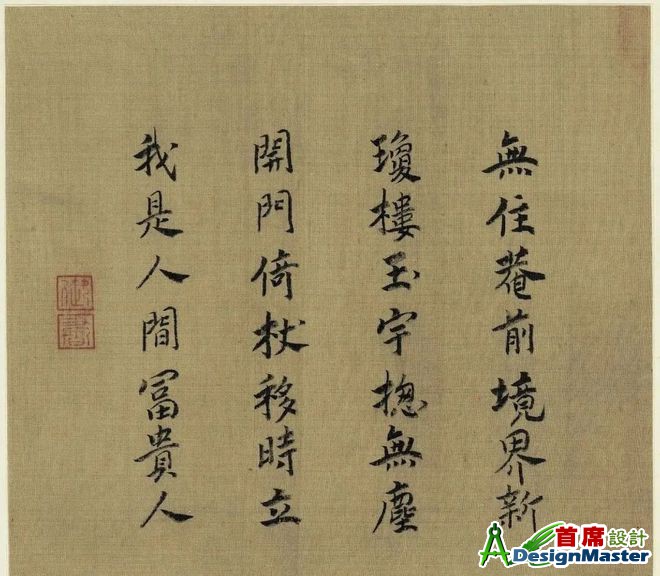 無住菴前境界新
瓊樓玉宇揔無塵
開門倚杖移時立
我是人間冨貴人
御書
首席設計
DesignMaster